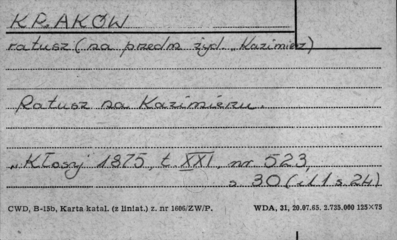 KRAKÓW
ratusz (na przedm żyd. „Kazimierz)
Ratusz na Kazimierzu.
„Kłosy" 1875, t. XXI, nr 523,
s 30 (il 1 s. 24)
CWD, B-15b, Karta katal. (z liniat.) z. nr 1606/ZW/P.
WDA, 31, 20.07.65. 2.735.000 125×75